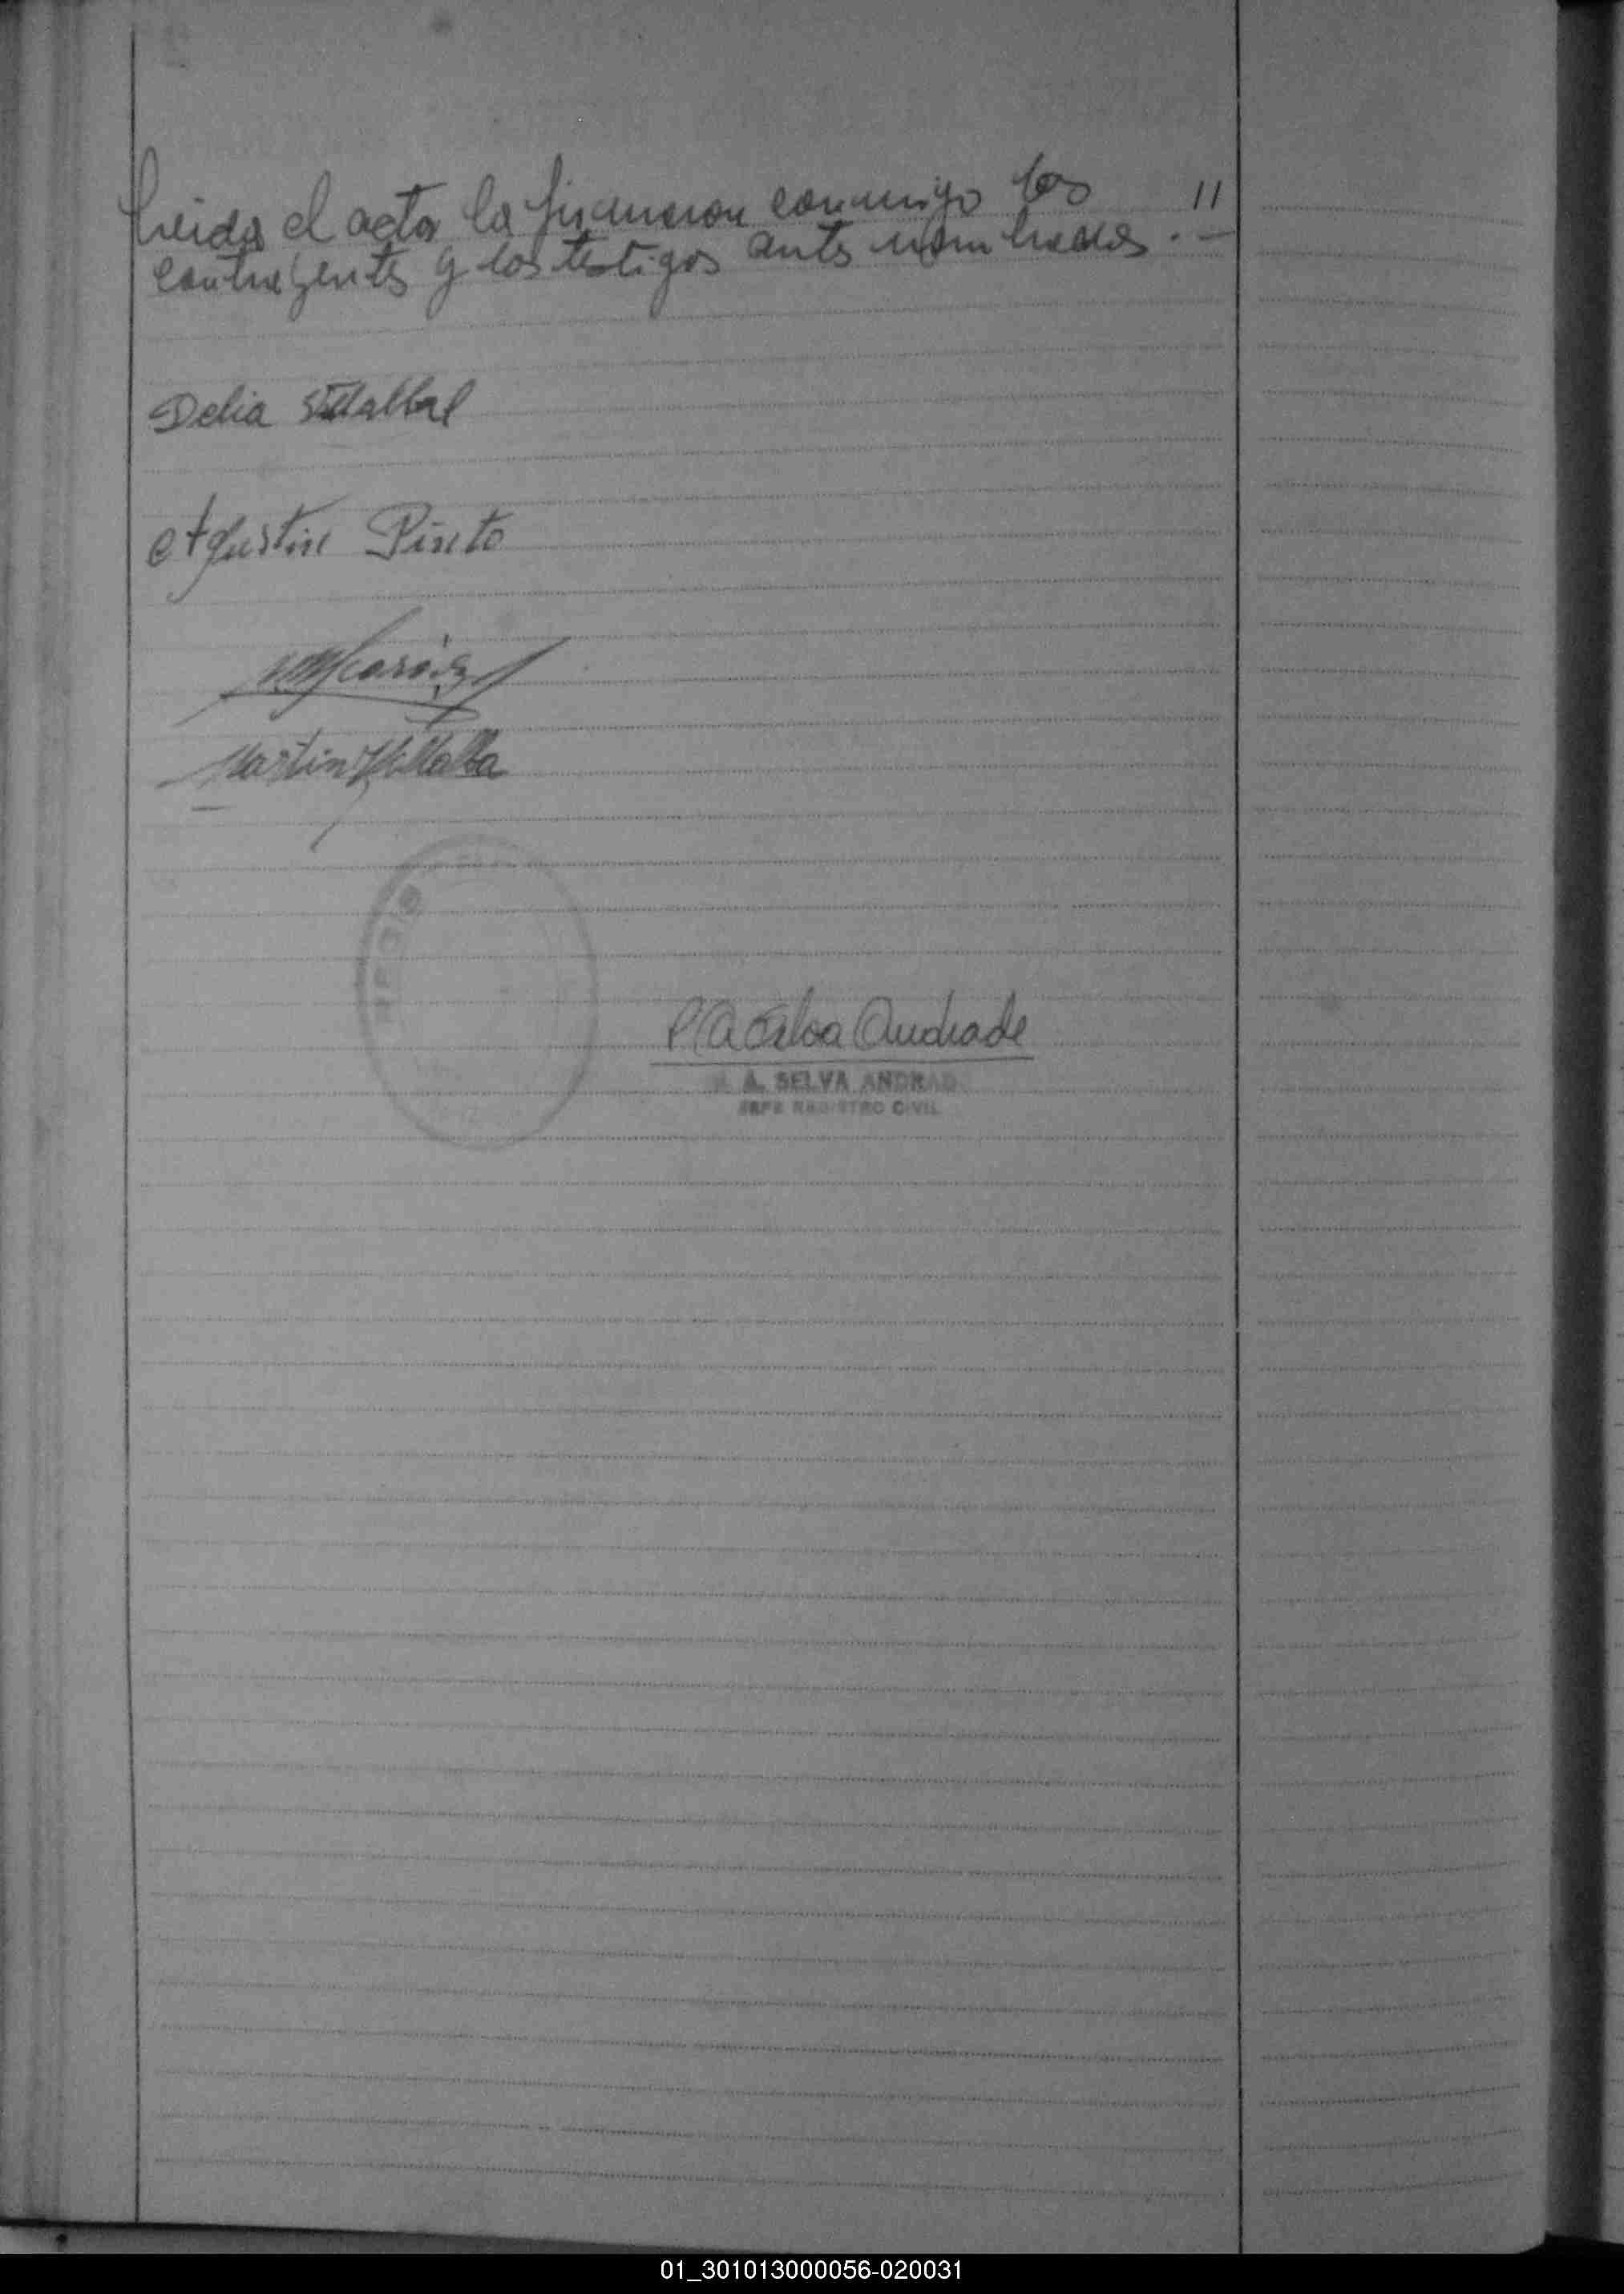 Leida el acta la firmaron conmigo los 11
contrayentes y los testigos antes nombrados . —
Delia Villalba
Agustin Pinto
Martin Villalba
P A Selva Andrade
A. SELVA ANDRAD
JEFE REGISTRO CIVIL
01_301013000056-020031